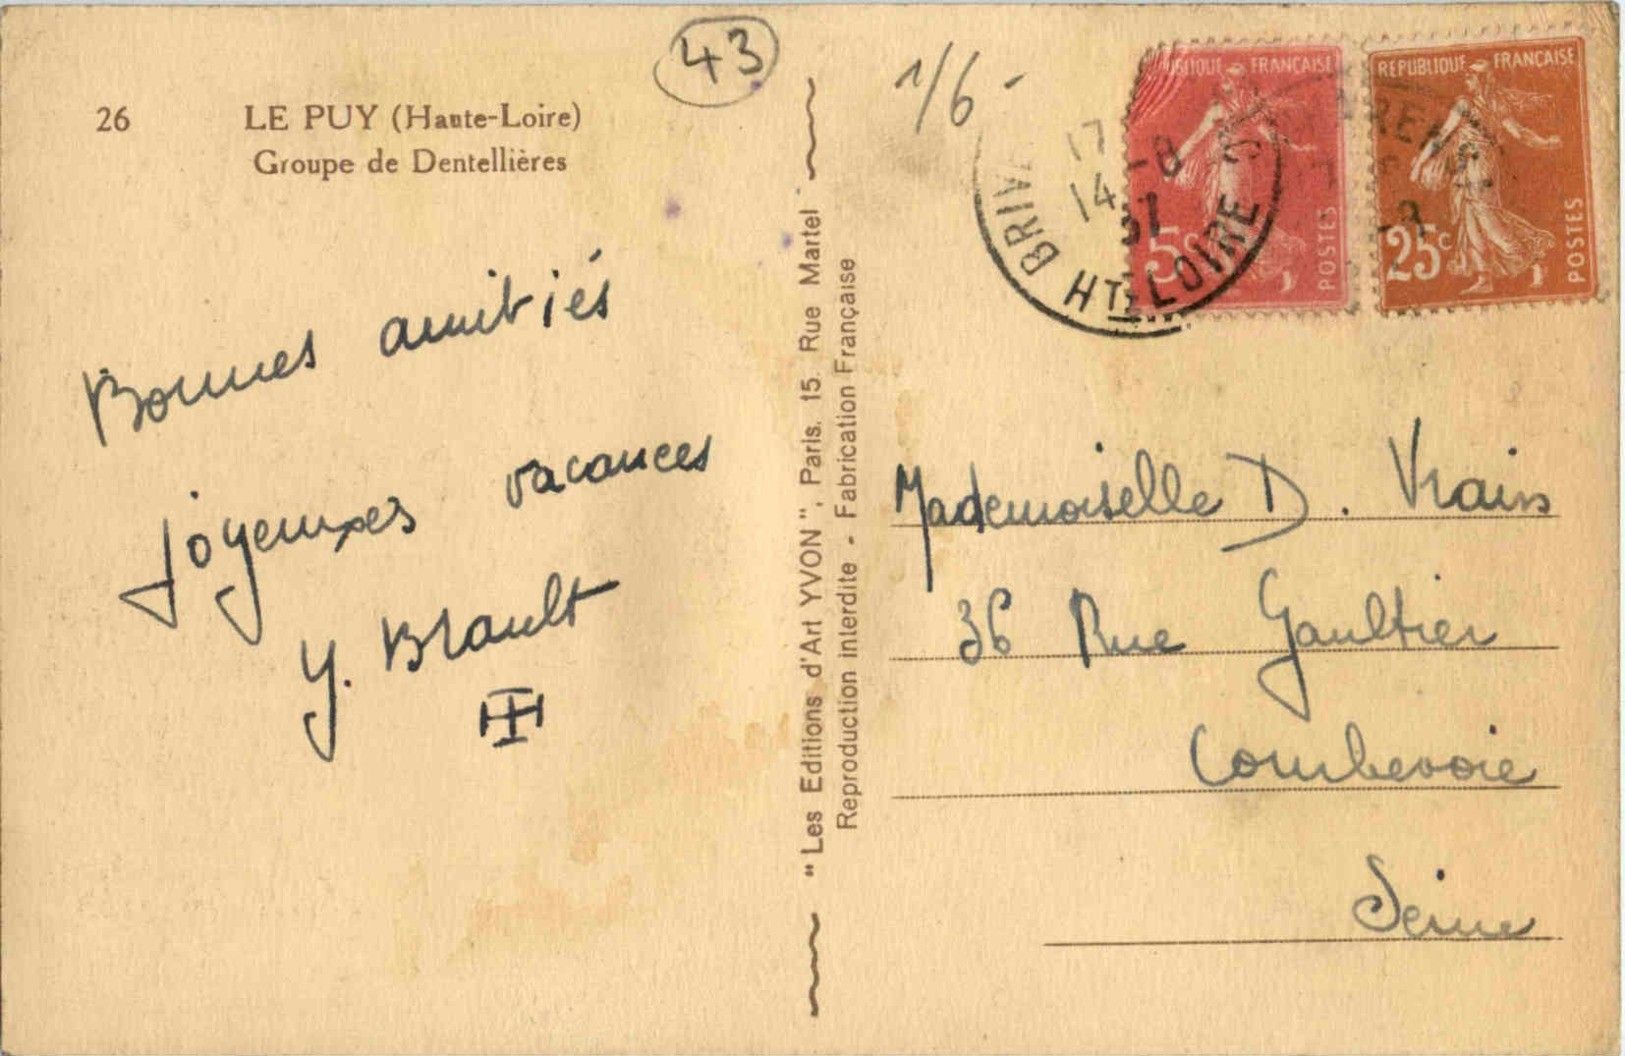 43
26 LE PUY (Haute-Loire)
Groupe de Dentellières
Bonnes amitiés
joyeuses vacances
Y. Brault
"Les Editions d'Art YVON", Paris. 15. Rue Martel
Reproduction interdite - Fabrication Française
1/6 -
FRANÇAISE
POSTES
REPUBLIQUE FRANÇAISE
25c
POSTES
17
14 -8
37
BRIV
Hte LOIRE
Mademoiselle D. Vrain
36 Rue Gaultier
Courbevoie
Seine